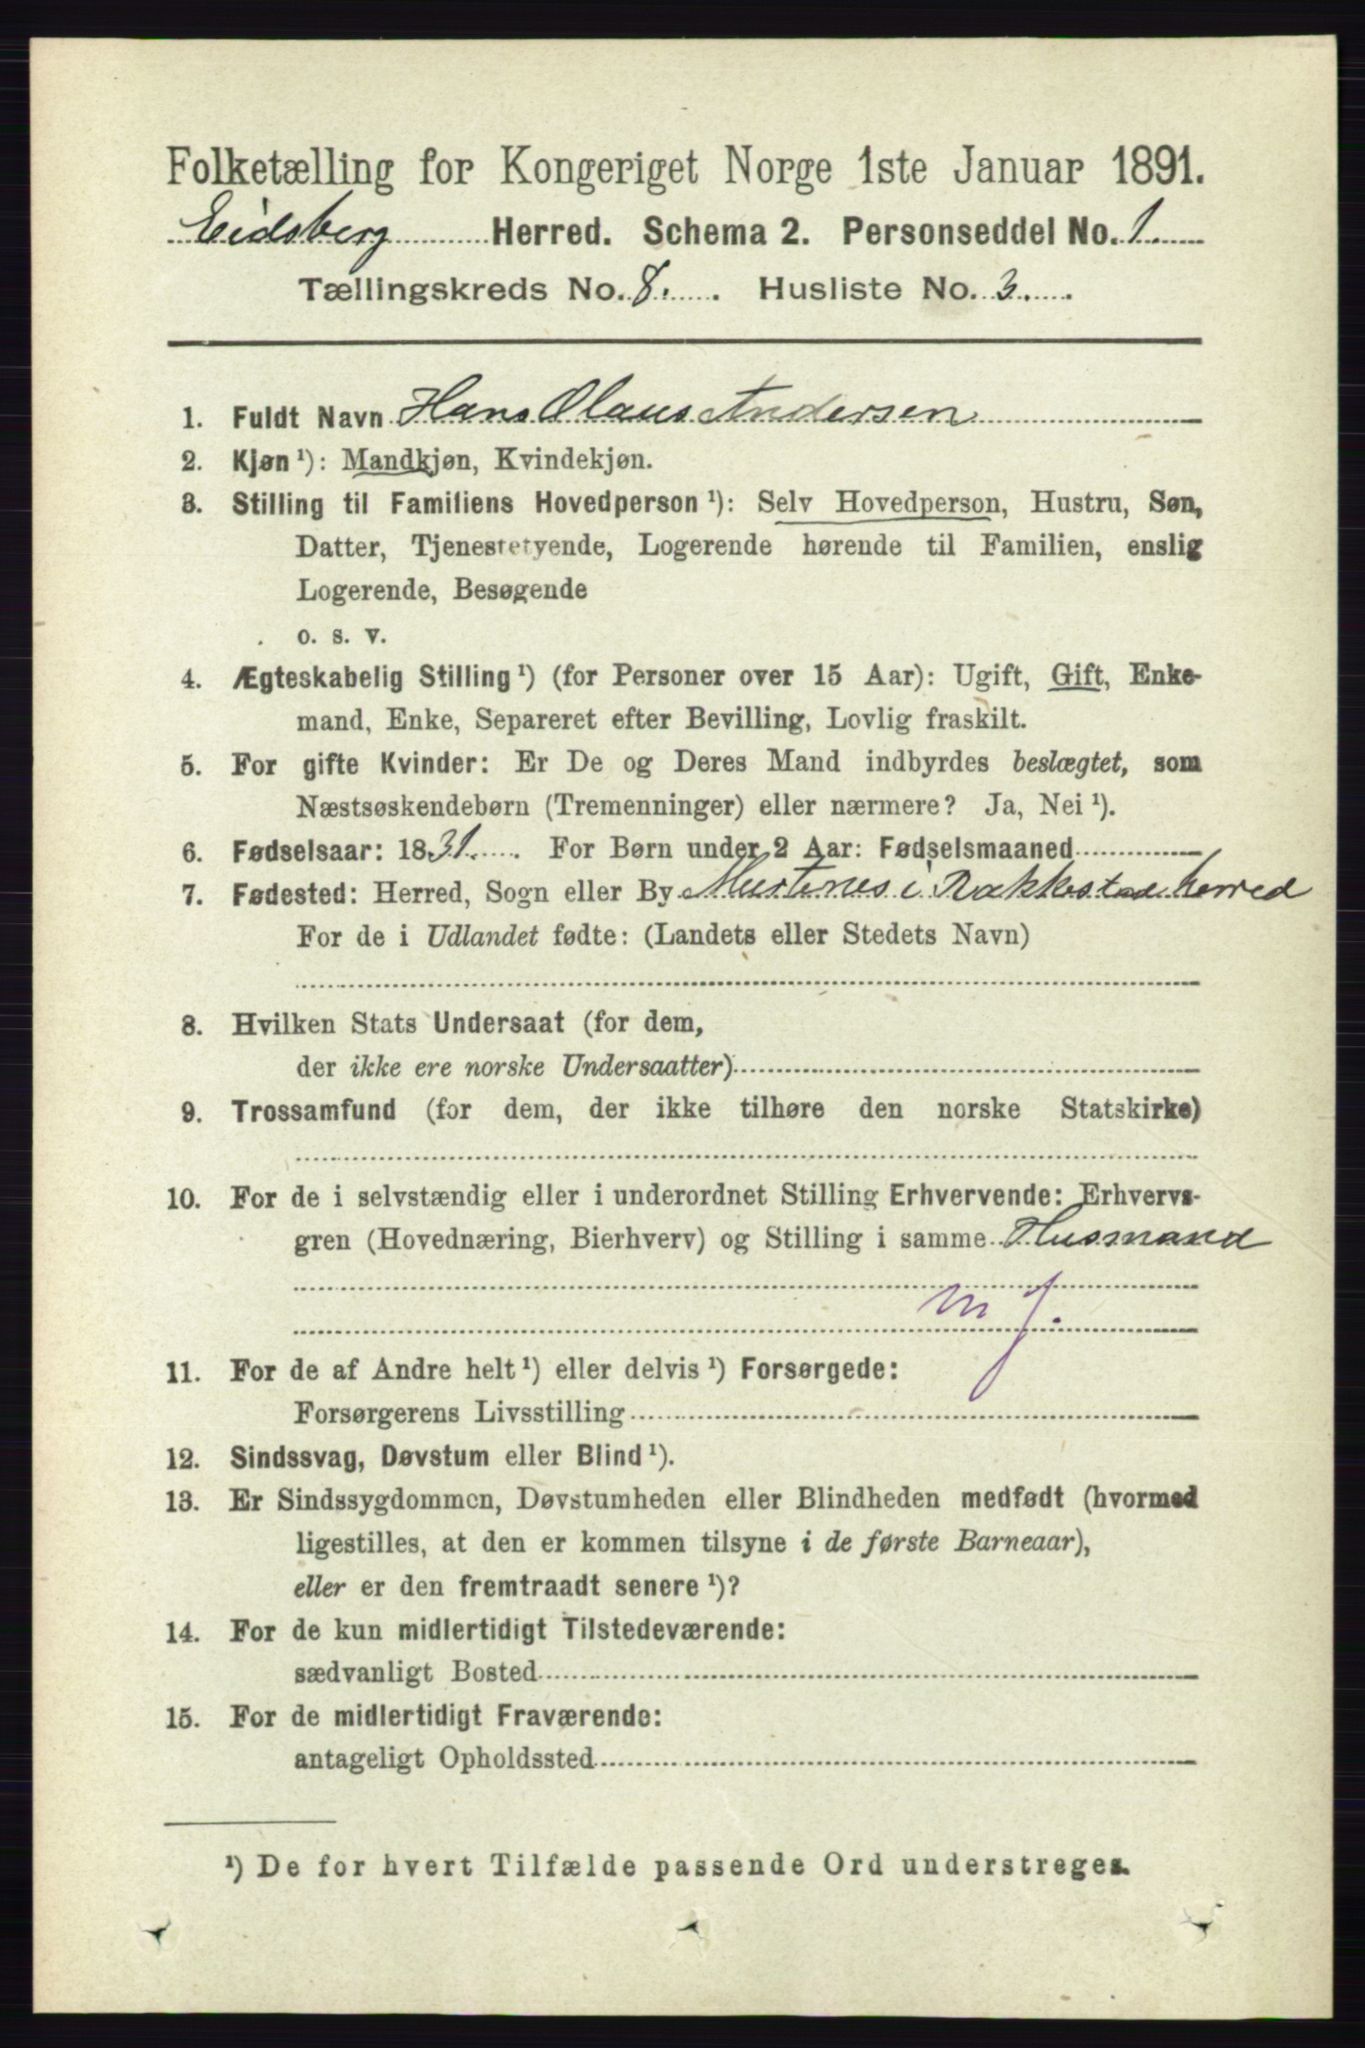 Folketælling for Kongeriget Norge 1ste Januar 1891.
Eidsberg Herred. Schema 2. Personseddel No. 1.
Tællingskreds No. 8. Husliste No. 3.
1. Fuldt Navn Hans Olaus Andersen
2. Kjøn¹): Mandkjøn, Kvindekjøn.
3. Stilling til Familiens Hovedperson¹): Selv Hovedperson, Hustru, Søn,
Datter, Tjenestetyende, Logerende hørende til Familien, enslig
Logerende, Besøgende
o. s. v.
4. Ægteskabelig Stilling¹) (for Personer over 15 Aar): Ugift, Gift, Enke-
mand, Enke, Separeret efter Bevilling, Lovlig fraskilt.
5. For gifte Kvinder: Er De og Deres Mand indbyrdes beslægtet, som
Næstsøskendebørn (Tremenninger) eller nærmere? Ja, Nei¹).
6. Fødselsaar: 1831. For Børn under 2 Aar: Fødselsmaaned
7. Fødested: Herred, Sogn eller By i Rakkestad herred
For de i Udlandet fødte: (Landets eller Stedets Navn)
8. Hvilken Stats Undersaat (for dem,
der ikke ere norske Undersaatter)
9. Trossamfund (for dem, der ikke tilhøre den norske Statskirke)
10. For de i selvstændig eller i underordnet Stilling Erhvervende: Erhvervs-
gren (Hovednæring, Bierhverv) og Stilling i samme Husmand
m j.
11. For de af Andre helt¹) eller delvis¹) Forsørgede:
Forsørgerens Livsstilling
12. Sindssvag, Døvstum eller Blind¹).
13. Er Sindssygdommen, Døvstumheden eller Blindheden medfødt (hvormed
ligestilles, at den er kommen tilsyne i de første Barneaar),
eller er den fremtraadt senere¹)?
14. For de kun midlertidigt Tilstedeværende:
sædvanligt Bosted
15. For de midlertidigt Fraværende:
antageligt Opholdssted
¹) De for hvert Tilfælde passende Ord understreges.